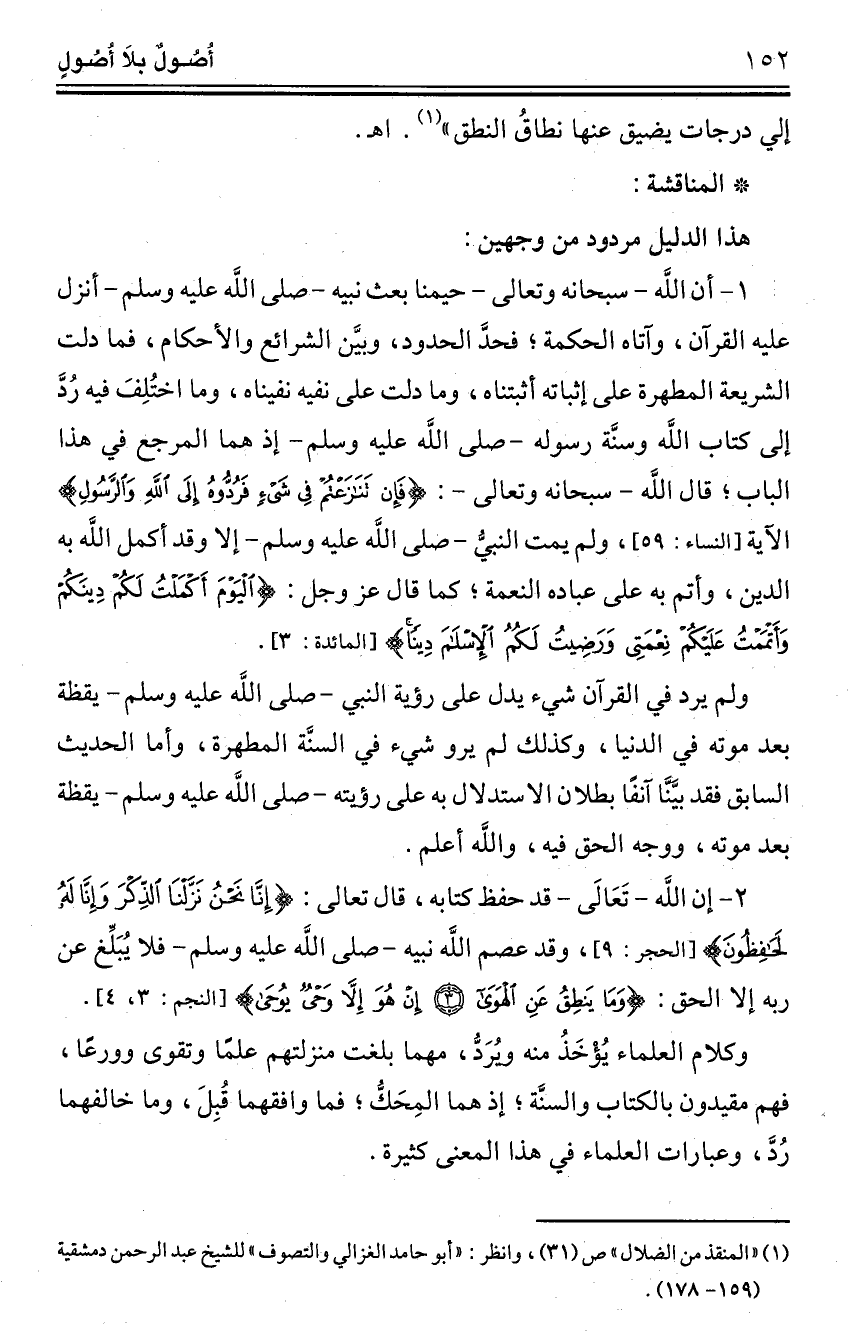 ١٥٢ أُصُـولٌ بِلَا أُصُـولٍ
إلي درجات يضيق عنها نطاقُ النطق»(١) . اهـ .
* المناقشة :
هذا الدليل مردود من وجهين :
١- أن اللَّه - سبحانه وتعالى - حيمنا بعث نبيه -صلى اللَّه عليه وسلم- أنزل
عليه القرآن ، وآتاه الحكمة ؛ فحدَّ الحدود، وبيَّن الشرائع والأحكام ، فما دلت
الشريعة المطهرة على إثباته أثبتناه ، وما دلت على نفيه نفيناه ، وما اختُلِفَ فيه رُدَّ
إلى كتاب اللَّه وسنَّة رسوله -صلى اللَّه عليه وسلم- إذ هما المرجع في هذا
الباب ؛ قال اللَّه - سبحانه وتعالى - : ﴿فَإِن تَنَٰزَعْتُمْ فِى شَىْءٍ فَرُدُّوهُ إِلَى ٱللَّهِ وَٱلرَّسُولِ﴾
الآية [النساء : ٥٩] ، ولم يمت النبيُّ -صلى اللَّه عليه وسلم- إلا وقد أكمل اللَّه به
الدين ، وأتم به على عباده النعمة ؛ كما قال عز وجل : ﴿ٱلْيَوْمَ أَكْمَلْتُ لَكُمْ دِينَكُمْ
وَأَتْمَمْتُ عَلَيْكُمْ نِعْمَتِى وَرَضِيتُ لَكُمُ ٱلْإِسْلَٰمَ دِينًا﴾ [المائدة : ٣] .
ولم يرد في القرآن شيء يدل على رؤية النبي -صلى اللَّه عليه وسلم- يقظة
بعد موته في الدنيا ، وكذلك لم يرو شيء في السنَّة المطهرة ، وأما الحديث
السابق فقد بيَّنَّا آنفًا بطلان الاستدلال به على رؤيته -صلى اللَّه عليه وسلم- يقظة
بعد موته ، ووجه الحق فيه ، واللَّه أعلم .
٢- إن اللَّه - تَعَالَى - قد حفظ كتابه ، قال تعالى : ﴿إِنَّا نَحْنُ نَزَّلْنَا ٱلذِّكْرَ وَإِنَّا لَهُۥ
لَحَٰفِظُونَ﴾ [الحجر : ٩] ، وقد عصم اللَّه نبيه -صلى اللَّه عليه وسلم- فلا يُبَلِّغ عن
ربه إلا الحق : ﴿وَمَا يَنطِقُ عَنِ ٱلْهَوَىٰٓ ۝٣ إِنْ هُوَ إِلَّا وَحْىٌ يُوحَىٰ﴾ [النجم : ٣، ٤] .
وكلام العلماء يُؤْخَذُ منه ويُرَدُّ ، مهما بلغت منزلتهم علمًا وتقوى وورعًا ،
فهم مقيدون بالكتاب والسنَّة ؛ إذ هما المِحَكُّ ؛ فما وافقهما قُبِلَ ، وما خالفهما
رُدَّ ، وعبارات العلماء في هذا المعنى كثيرة .
(١) «المنقذ من الضلال» ص (٣١) ، وانظر : «أبو حامد الغزالي والتصوف» للشيخ عبد الرحمن دمشقية
(١٥٩- ١٧٨) .